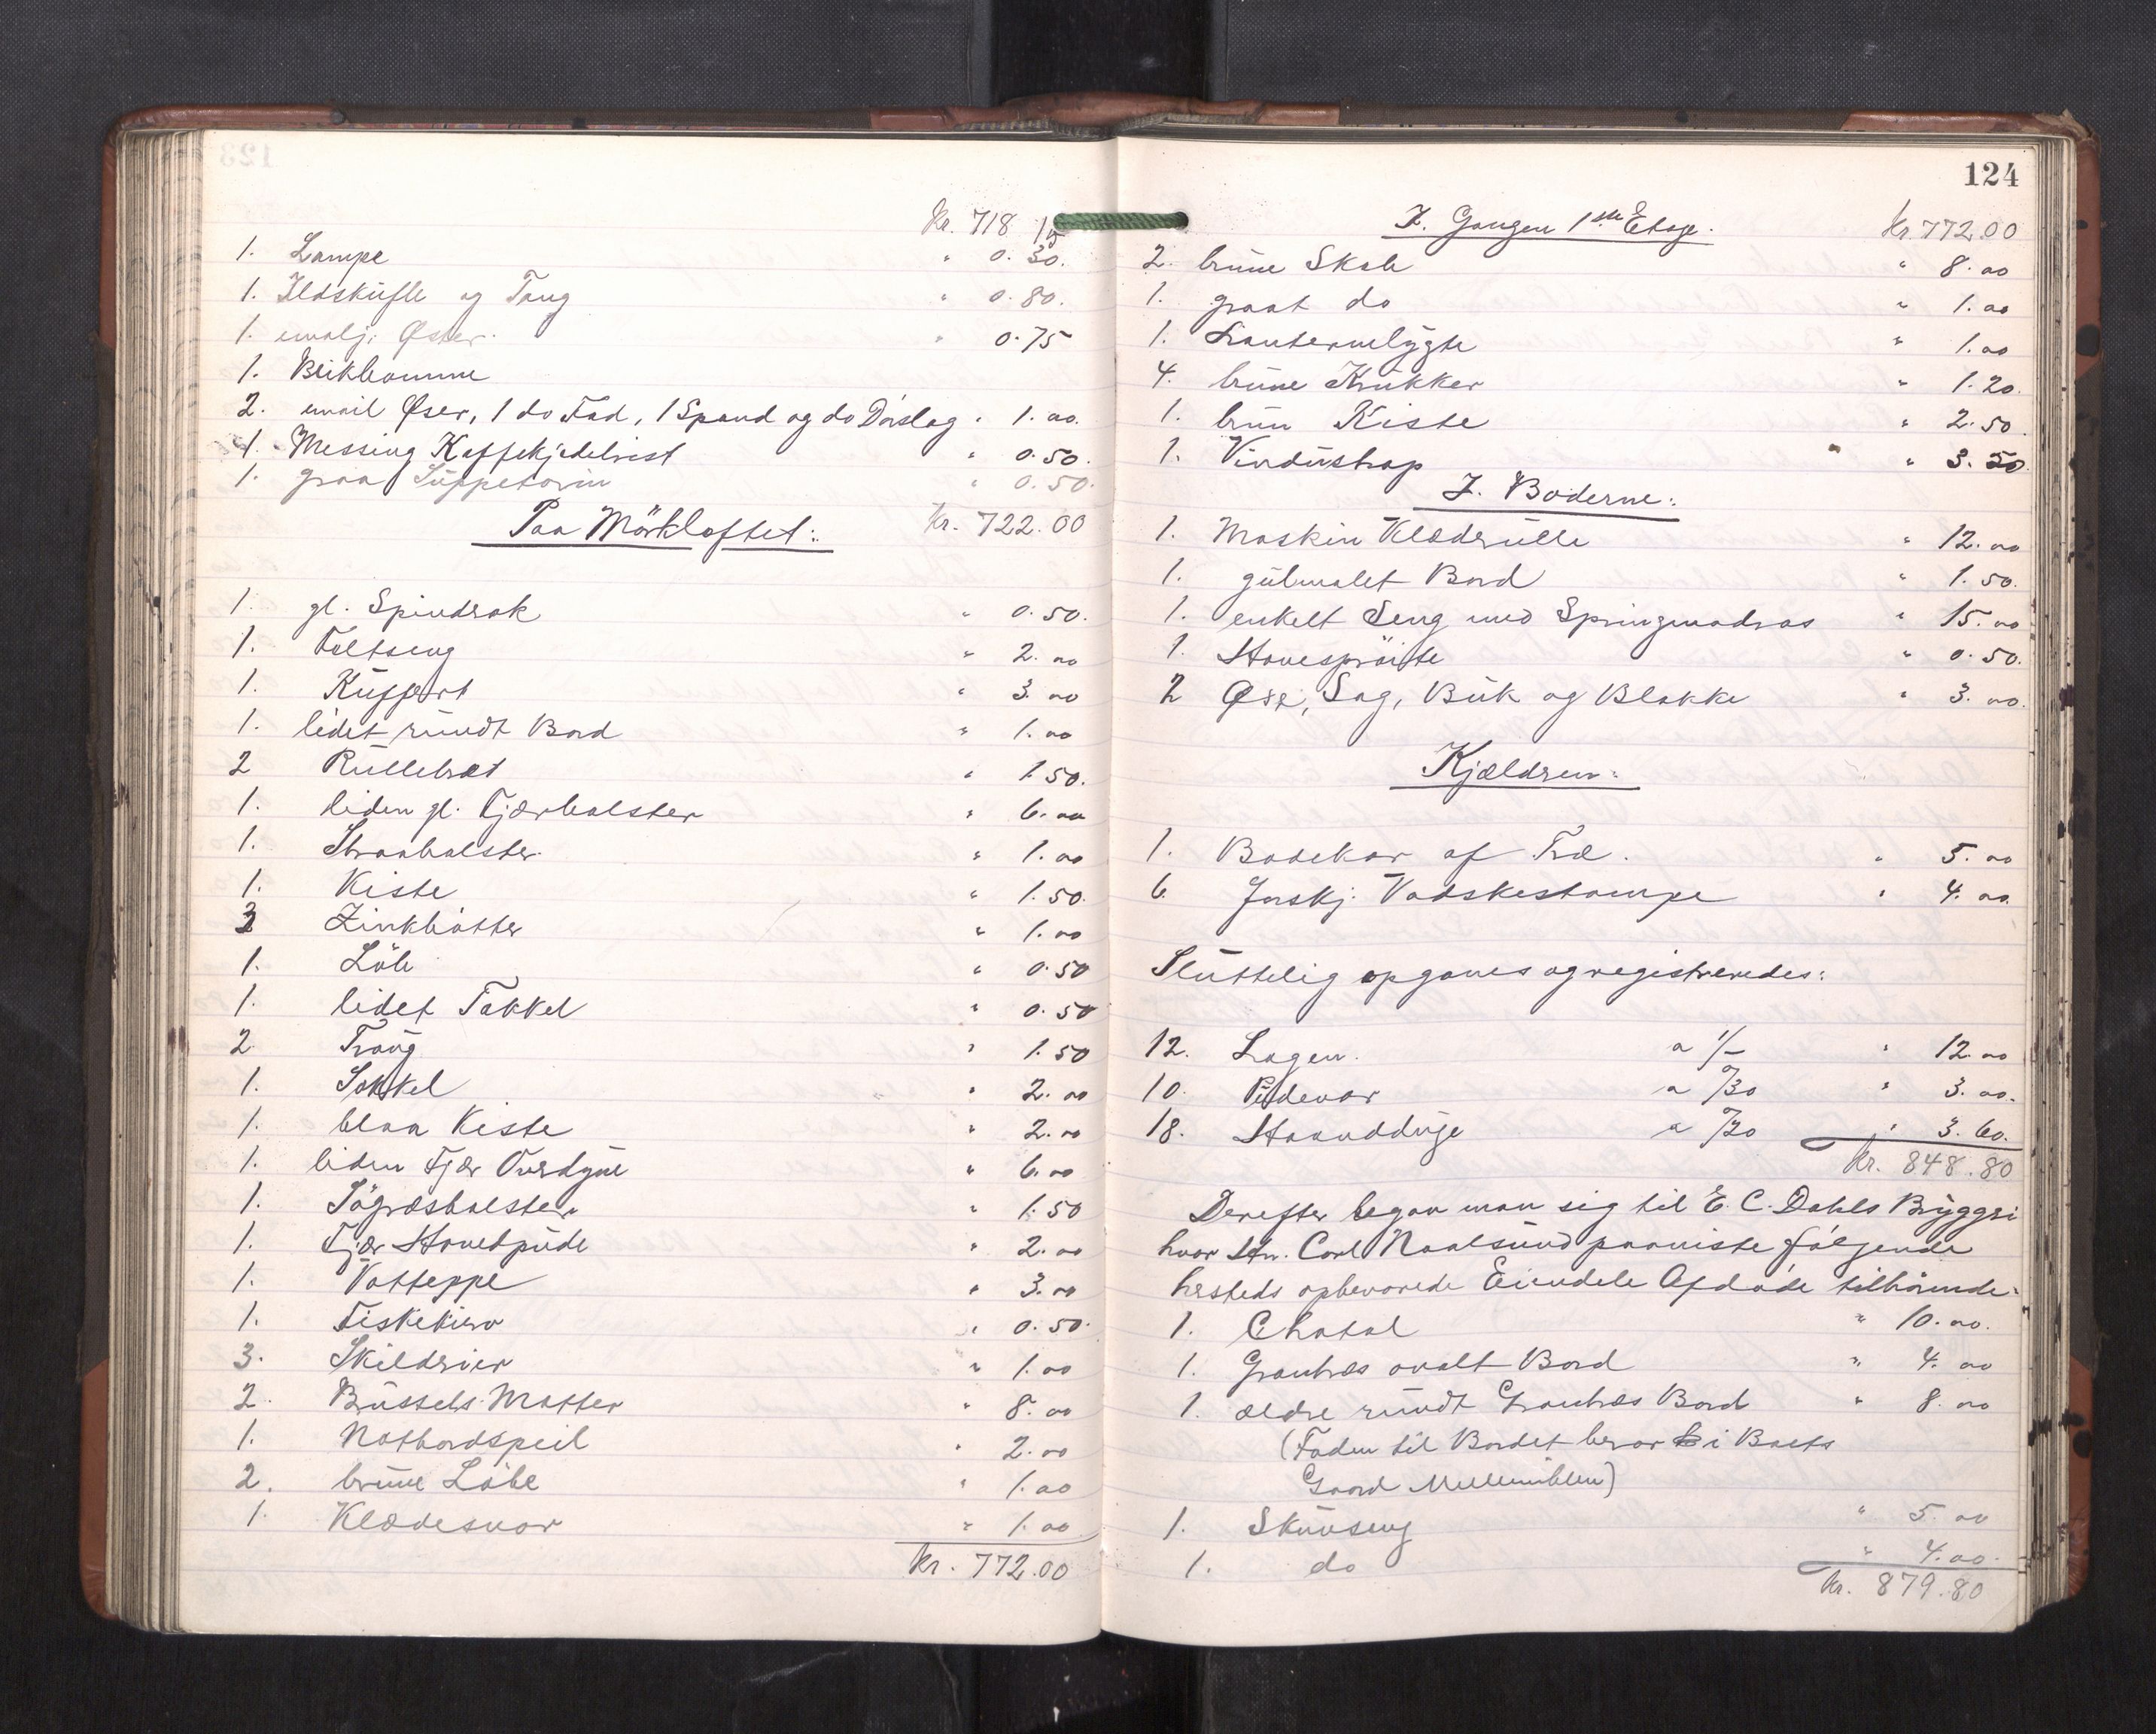 Kr. 718 15
1. Lampe " 0.30.
1. Ildskuffe og Tang " 0.80.
1. emalj. Øster. " 0.75
1. Blikkomme
2. email Øser, 1 do Fad, 1 Spand og do Dørslag " 1.00.
1. Messing Kaffekjedelrist " 0.50.
1. graa Suppeterin " 0.50.
Paa Mörkloftet: Kr. 722.00
1. gl. Spindrok " 0.50.
1. Feltseng " 2.00
1. Kuffert " 3.00
1. lidet rundt Bord " 1.00
2 Rullebræt " 1.50.
1. liden gl. Fjærbolster " 6.00
1. Straabolster " 1.00
1. Kiste " 1.50.
3 Zinkbøtter " 1.00
1. Löb " 0.50
1. lidet Takkel " 0.50
2 Traug " 1.50
1. Sokkel " 2.00
1. blaa Kiste " 2.00
1. liden Fjær Overdyne " 6.00
1. Sögræsbolster " 1.50
1. Fjær Hovedpude " 2.00
1. Vatteppe " 3.00
1. Fiskekurv " 0.50.
3. Skilderier " 1.00
2. Brüssels Matter " 8.00
1. Natbordspeil " 2.00
2. brune Löbe " 1.00
1. Klædesnor " 1.00
Kr. 772.00
124
I. Gangen 1ste Etage. Kr. 772.00
2. brune Skab " 8.00
1. graat do " 1.00
1. Lanternelygte " 1.00
4. brune Krukker " 1.20.
1. brun Kiste " 2.50.
1. Vindustrap " 3.50
I. Boderne:
1. Maskin Klæderulle " 12.00
1. gulmalet Bord " 1.50.
1. enkelt Seng med Springmadras " 15.00
1. Havesprøite " 0.50.
2 Øxe, Sag, Buk og Blakke " 3.00.
Kjældren:
1. Badekar af Træ. " 5.00
6. forskj. Vadskestampe " 4.00.
Sluttelig opgaves og registreredes:
12. Lagen. a 1/- " 12.00
10. Pudevar a "/30 " 3.00.
18. Haandduge a "/20 " 3.60.
Kr. 848.80
Derefter begav man sig til E. C. Dahls Bryggri
hvor Hr. Carl Naalsund paaviste følgende
hersteds opbevarede Eiendele Afdøde tilhørende:
1. Chatol " 10.00.
1. Grantræs ovalt Bord " 4.00
1. ældre rundt Grantræs Bord " 8.00
(Foden til Bordet beror i Baets
Gaard Mellemilden)
1. Skuvseng " 5.00
1. do " 4.00.
Kr. 879.80